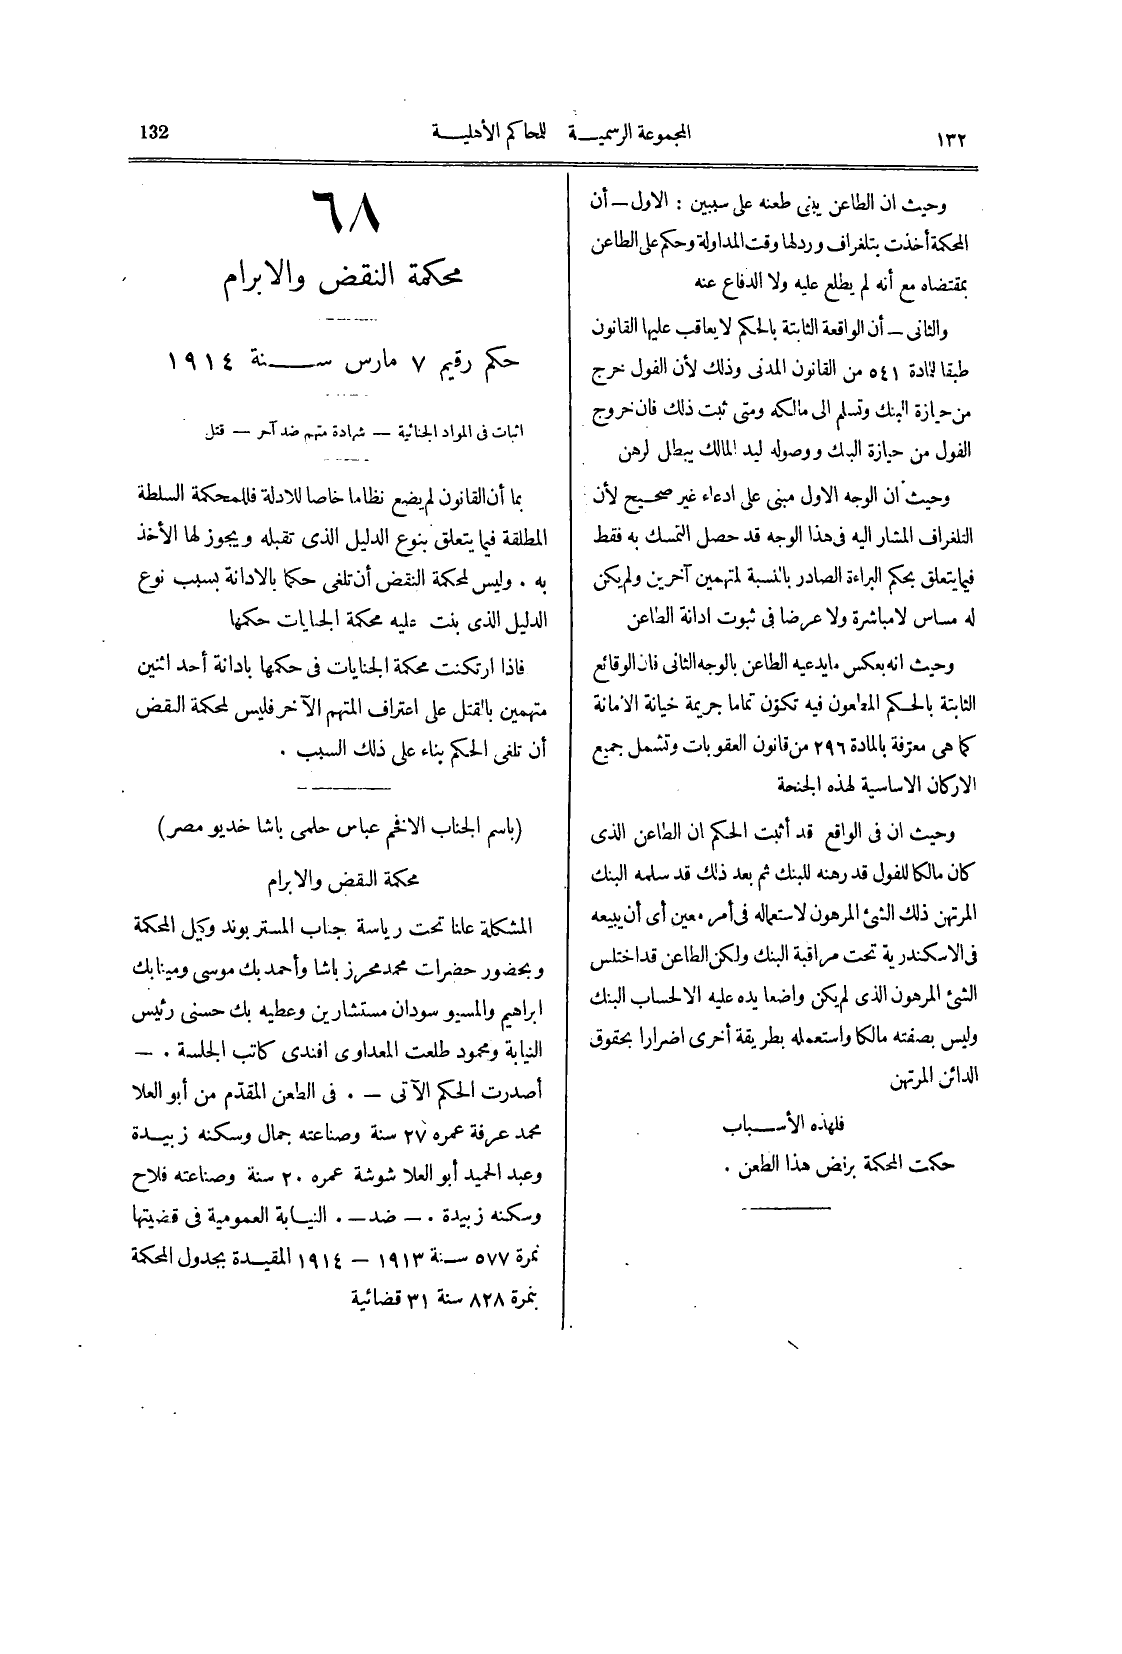 ١٣٢
المجموعة الرسمية للمحاكم الأهلية
132
وحيث ان الطاعن يبنى طعنه على سببين : الاول — أن
المحكمة أخذت بتلغراف ورد لها وقت المداولة وحكم على الطاعن
بمقتضاه مع أنه لم يطلع عليه ولا الدفاع عنه
والثانى — أن الواقعة الثابتة بالحكم لا يعاقب عليها القانون
طبقا للمادة ٥٤١ من القانون المدنى وذلك لأن الفول خرج
من حيازة البنك وتسلم الى مالكه ومتى ثبت ذلك فان خروج
الفول من حيازة البنك ووصوله ليد المالك يبطل الرهن
وحيث ان الوجه الاول مبنى على ادعاء غير صحيح لأن
التلغراف المشار اليه فى هذا الوجه قد حصل التمسك به فقط
فيما يتعلق بحكم البراءة الصادر بالنسبة لمتهمين آخرين ولم يكن
له مساس لا مباشرة ولا عرضا فى ثبوت ادانة الطاعن
وحيث انه بعكس ما يدعيه الطاعن بالوجه الثانى فان الوقائع
الثابتة بالحكم المطعون فيه تكوّن تماما جريمة خيانة الامانة
كما هى معرّفة بالمادة ٢٩٦ من قانون العقوبات وتشمل جميع
الاركان الاساسية لهذه الجنحة
وحيث ان فى الواقع قد أثبت الحكم ان الطاعن الذى
كان مالكا للفول قد رهنه للبنك ثم بعد ذلك قد سلمه البنك
المرتهن ذلك الشئ المرهون لاستعماله فى أمر معين أى أن يبيعه
فى الاسكندرية تحت مراقبة البنك ولكن الطاعن قد اختلس
الشئ المرهون الذى لم يكن واضعا يده عليه الا لحساب البنك
وليس بصفته مالكا واستعمله بطريقة أخرى اضرارا بحقوق
الدائن المرتهن
فلهذه الأسباب
حكمت المحكمة برفض هذا الطعن .
٦٨
محكمة النقض والابرام
حكم رقيم ٧ مارس سنة ١٩١٤
اثبات فى المواد الجنائية — شهادة متهم ضد آخر — قتل
بما أن القانون لم يضع نظاما خاصا للادلة فللمحكمة السلطة
المطلقة فيما يتعلق بنوع الدليل الذى تقبله ويجوز لها الأخذ
به . وليس لمحكمة النقض أن تلغى حكما بالادانة بسبب نوع
الدليل الذى بنت عليه محكمة الجنايات حكمها
فاذا ارتكنت محكمة الجنايات فى حكمها بادانة أحد اثنين
متهمين بالقتل على اعتراف المتهم الآخر فليس لمحكمة النقض
أن تلغى الحكم بناء على ذلك السبب .
(باسم الجناب الافخم عباس حلمى باشا خديو مصر)
محكمة النقض والابرام
المشكلة علنا تحت رياسة جناب المستر بوند وكيل المحكمة
وبحضور حضرات محمد محرز باشا وأحمد بك موسى ومينا بك
ابراهيم والمسيو سودان مستشارين وعطيه بك حسنى رئيس
النيابة ومحمود طلعت المعداوى افندى كاتب الجلسة . —
أصدرت الحكم الآتى — . فى الطعن المقدّم من أبو العلا
محمد عرفة عمره ٢٧ سنة وصناعته جمال وسكنه زبيدة
وعبد الحميد أبو العلا شوشة عمره ٢٠ سنة وصناعته فلاح
وسكنه زبيدة . — ضد — . النيابة العمومية فى قضيتها
نمرة ٥٧٧ سنة ١٩١٣ — ١٩١٤ المقيدة بجدول المحكمة
بنمرة ٨٢٨ سنة ٣١ قضائية